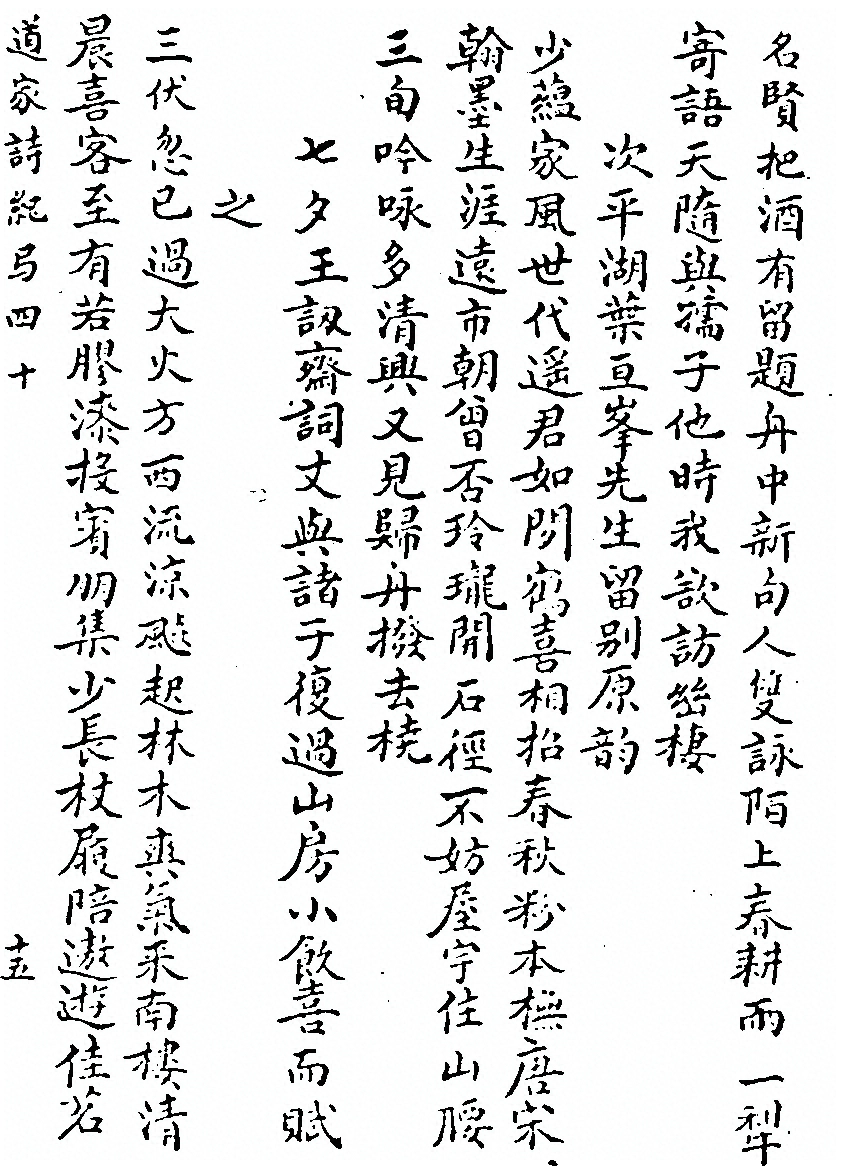 名賢把酒有留題舟中新句人雙詠陌上春耕雨一犂
寄語天隨與孺子他時我欲訪幽棲
次平湖葉亘峯先生留別原韵
少蘊家風世代遥君如閒鶴喜相招春秋粉本橅唐宋
翰墨生涯遠市朝曾否玲瓏開石徑不妨屋宇住山腰
三旬吟咏多清興又見歸舟撥去橈
七夕王訒齋詞丈與諸子復過山房小飲喜而賦
之
三伏忽已過大火方西流涼颸起林木爽氣來南樓清
晨喜客至有若膠漆投賓朋集少長杖履陪遨遊佳茗
道家詩紀卷四十
十五